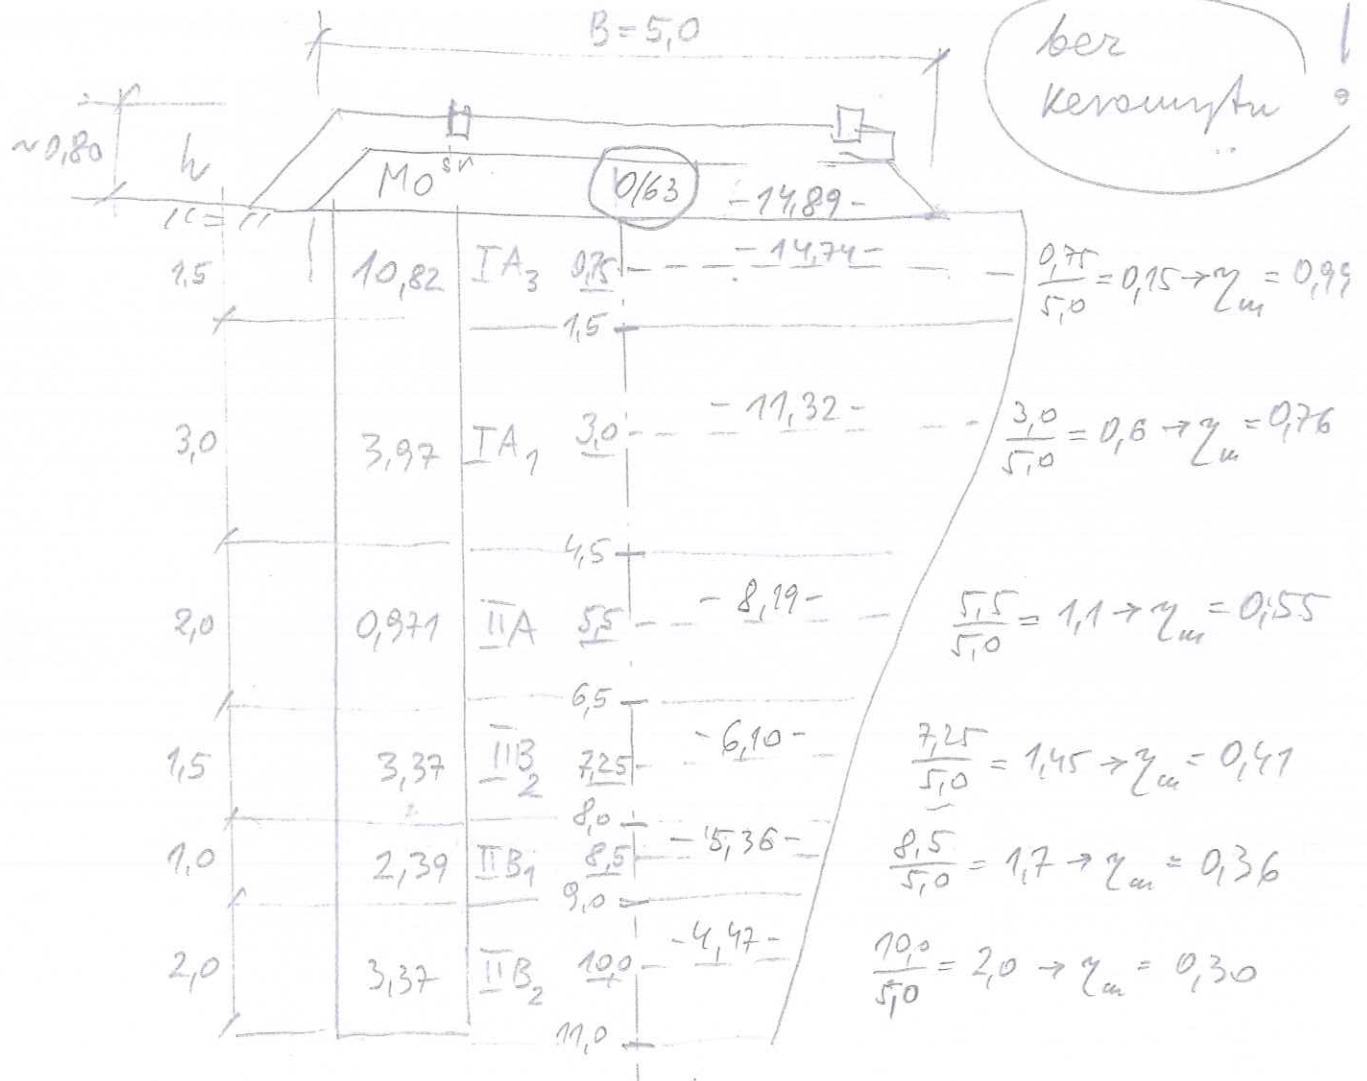 B=5,0
!
~0,80
h
Mo śr
0/63
-14,89-
1,5
10,82
IA3
0,75
-14,74-
0,75/5,0 = 0,15 → ηm = 0,99
1,5
3,0
3,97
IA1
3,0
-11,32-
3,0/5,0 = 0,6 → ηm = 0,76
4,5
2,0
0,971
IIA
5,5
-8,19-
5,5/5,0 = 1,1 → ηm = 0,55
6,5
1,5
3,37
IIB2
7,25
-6,10-
7,25/5,0 = 1,45 → ηm = 0,41
8,0
1,0
2,39
IIB1
8,5
-5,36-
8,5/5,0 = 1,7 → ηm = 0,36
9,0
2,0
3,37
IIB2
10,0
-4,47-
10,0/5,0 = 2,0 → ηm = 0,30
11,0